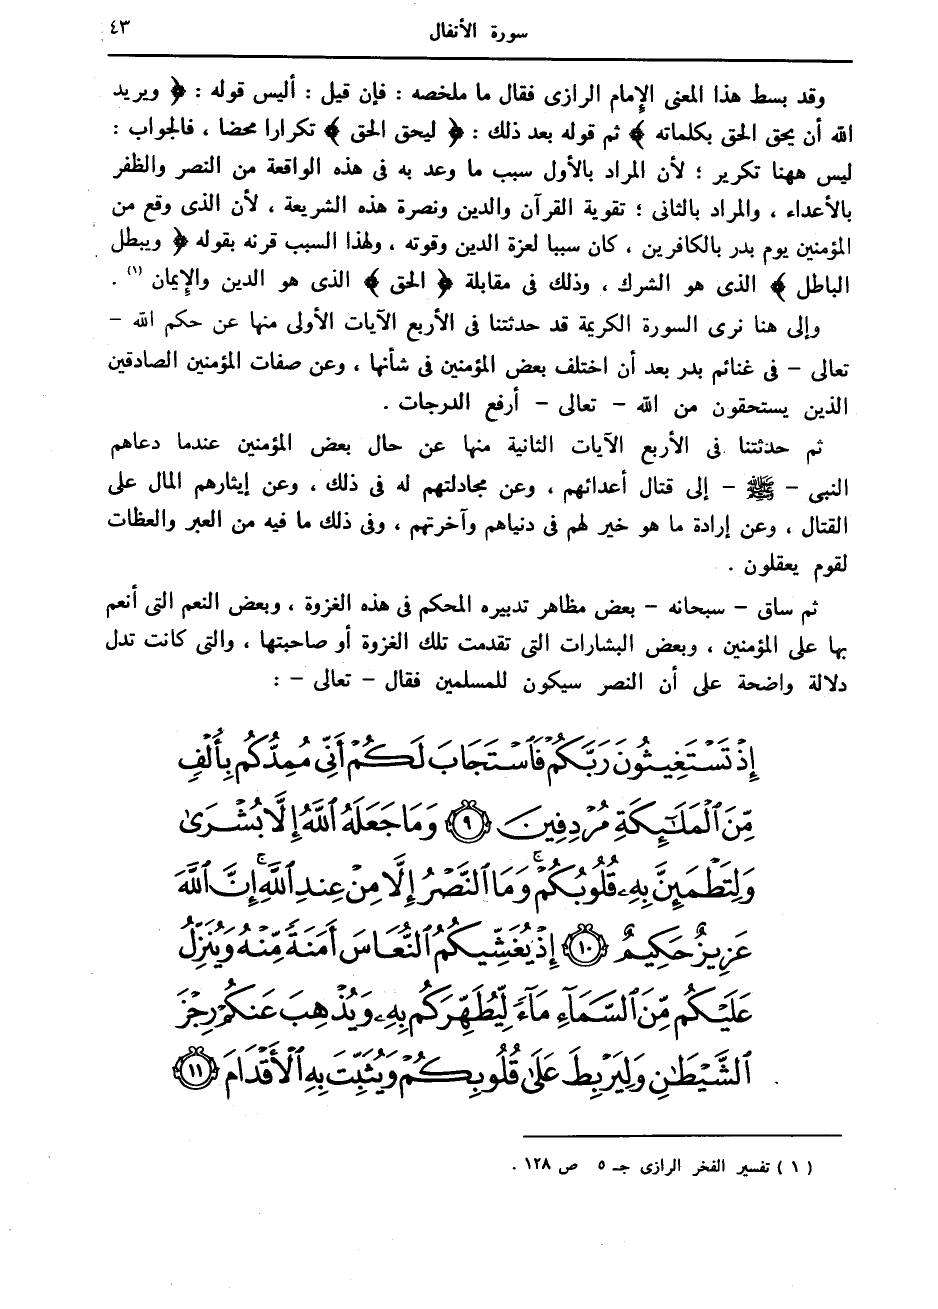 سورة الأنفال
٤٣
وقد بسط هذا المعنى الإمام الرازى فقال ما ملخصه : فإن قيل : أليس قوله : ﴿ ويريد
الله أن يحق الحق بكلماته ﴾ ثم قوله بعد ذلك : ﴿ ليحق الحق ﴾ تكرارا محضا ، فالجواب :
ليس ههنا تكرير ؛ لأن المراد بالأول سبب ما وعد به فى هذه الواقعة من النصر والظفر
بالأعداء ، والمراد بالثانى ؛ تقوية القرآن والدين ونصرة هذه الشريعة ، لأن الذى وقع من
المؤمنين يوم بدر بالكافرين ، كان سببا لعزة الدين وقوته ، ولهذا السبب قرنه بقوله ﴿ ويبطل
الباطل ﴾ الذى هو الشرك ، وذلك فى مقابلة ﴿ الحق ﴾ الذى هو الدين والإيمان (١) .
وإلى هنا نرى السورة الكريمة قد حدثتنا فى الأربع الآيات الأولى منها عن حكم الله –
تعالى – فى غنائم بدر بعد أن اختلف بعض المؤمنين فى شأنها ، وعن صفات المؤمنين الصادقين
الذين يستحقون من الله – تعالى – أرفع الدرجات .
ثم حدثتنا فى الأربع الآيات الثانية منها عن حال بعض المؤمنين عندما دعاهم
النبى – ﷺ – إلى قتال أعدائهم ، وعن مجادلتهم له فى ذلك ، وعن إيثارهم المال على
القتال ، وعن إرادة ما هو خير لهم فى دنياهم وآخرتهم ، وفى ذلك ما فيه من العبر والعظات
لقوم يعقلون .
ثم ساق – سبحانه – بعض مظاهر تدبيره المحكم فى هذه الغزوة ، وبعض النعم التى أنعم
بها على المؤمنين ، وبعض البشارات التى تقدمت تلك الغزوة أو صاحبتها ، والتى كانت تدل
دلالة واضحة على أن النصر سيكون للمسلمين فقال – تعالى – :
إِذْ تَسْتَغِيثُونَ رَبَّكُمْ فَٱسْتَجَابَ لَكُمْ أَنِّى مُمِدُّكُم بِأَلْفٍ
مِّنَ ٱلْمَلَٰٓئِكَةِ مُرْدِفِينَ ٩ وَمَا جَعَلَهُ ٱللَّهُ إِلَّا بُشْرَىٰ
وَلِتَطْمَئِنَّ بِهِۦ قُلُوبُكُمْ ۚ وَمَا ٱلنَّصْرُ إِلَّا مِنْ عِندِ ٱللَّهِ ۚ إِنَّ ٱللَّهَ
عَزِيزٌ حَكِيمٌ ١٠ إِذْ يُغَشِّيكُمُ ٱلنُّعَاسَ أَمَنَةً مِّنْهُ وَيُنَزِّلُ
عَلَيْكُم مِّنَ ٱلسَّمَآءِ مَآءً لِّيُطَهِّرَكُم بِهِۦ وَيُذْهِبَ عَنكُمْ رِجْزَ
ٱلشَّيْطَٰنِ وَلِيَرْبِطَ عَلَىٰ قُلُوبِكُمْ وَيُثَبِّتَ بِهِ ٱلْأَقْدَامَ ١١
( ١ ) تفسير الفخر الرازى جـ ٥ ص ١٢٨ .